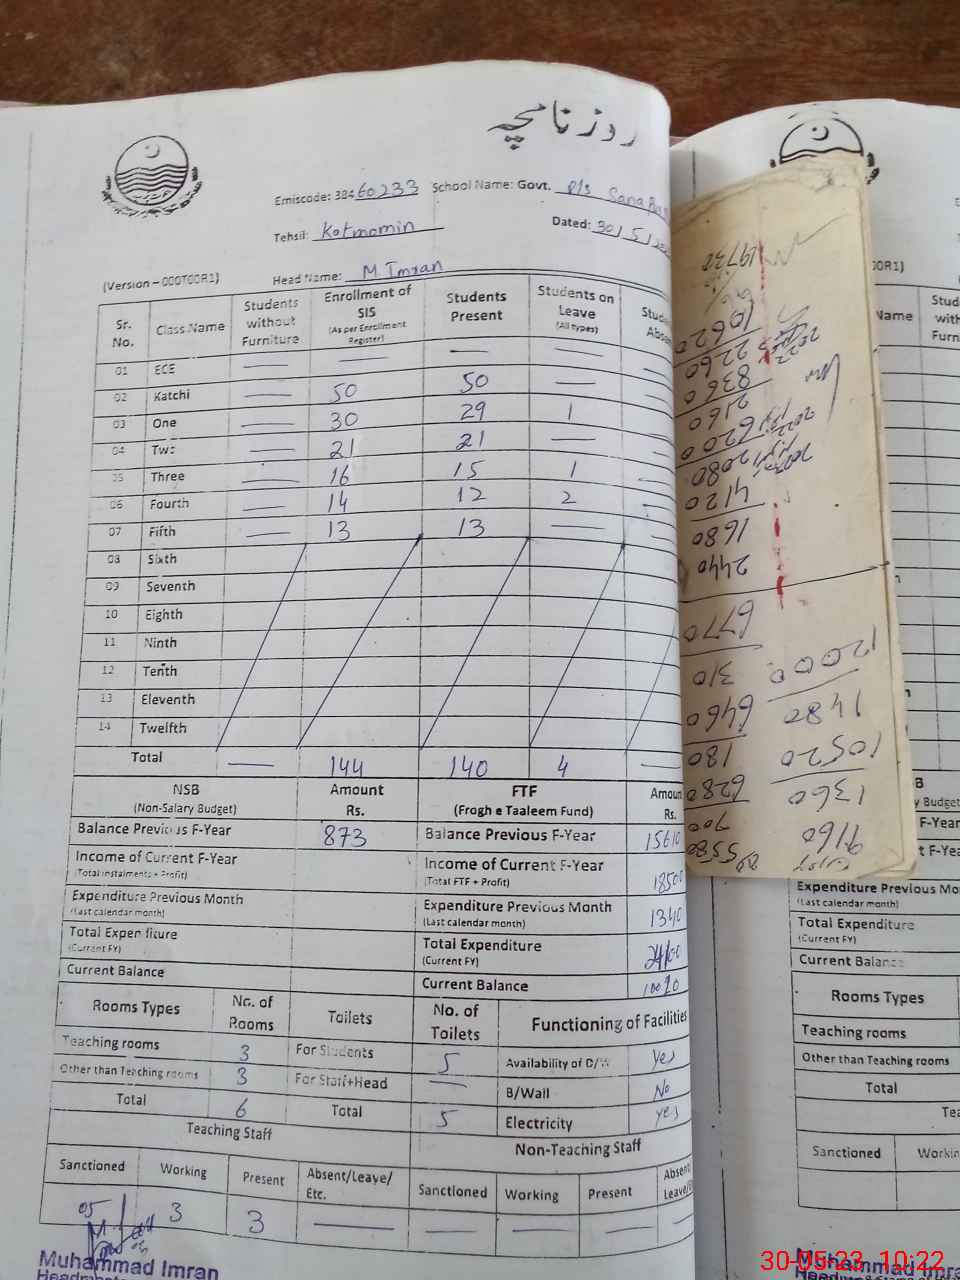 روزنامچہ
Emiscode: 38460233 School Name: Govt. P/s Sana
Tehsil: Kotmomin Dated: 30/5/
(Version – 000T00R1) Head Name: M Imran
Sr. No. Class Name Students without Furniture Enrollment of SIS (As per Enrollment Register) Students Present Students on Leave (All types)
01 ECE — — — —
02 Katchi — 50 50 —
03 One — 30 29 1
04 Two — 21 21 —
05 Three — 16 15 1
06 Fourth — 14 12 2
07 Fifth — 13 13 —
08 Sixth
09 Seventh
10 Eighth
11 Ninth
12 Tenth
13 Eleventh
14 Twelfth
Total — 144 140 4 —
NSB (Non-Salary Budget) Amount Rs. FTF (Frogh e Taaleem Fund) Amount Rs.
Balance Previous F-Year 873 Balance Previous F-Year 15610
Income of Current F-Year (Total instalments + Profit) Income of Current F-Year (Total FTF + Profit) 18500
Expenditure Previous Month (Last calendar month) Expenditure Previous Month (Last calendar month) 1340
Total Expenditure (Current FY) Total Expenditure (Current FY)
Current Balance Current Balance
Rooms Types No. of Rooms Toilets No. of Toilets Functioning of Facilities
Teaching rooms 3 For Students 5 Availability of D/W Yes
Other than Teaching rooms 3 For Staff+Head — B/Wall No
Total 6 Total 5 Electricity Yes
Teaching Staff Non-Teaching Staff
Sanctioned Working Present Absent/Leave/Etc. Sanctioned Working Present Absent/Leave/
05 3 3 — — — — —
Muhammad Imran
19732
10620
2260
8360
2160
6200
2080
4120
1680
2440
6770
310
6460
180
6280
700
5580
12000
1480
10520
1360
9160
Expenditure Previous Mo
(Last calendar month)
Total Expenditure
(Current FY)
Current Balance
Rooms Types
Teaching rooms
Other than Teaching rooms
Total
Sanctioned Workin
Muhammad Imra
30-05-23 10:22